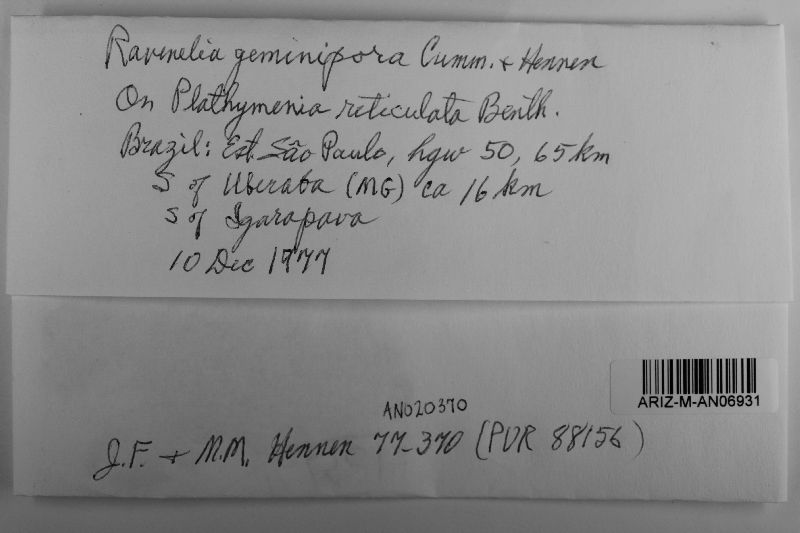 Ravenelia geminipora Cumm. & Hennen
On Plathymenia reticulata Benth.
Brazil: Est. São Paulo, hgw 50, 65 km
S of Uberaba (MG) ca 16 km
S of Igarapava
10 Dec 1977
ARIZ-M-AN06931
AN020370
J.F. & M.M. Hennen 77-370 (PUR 88156)